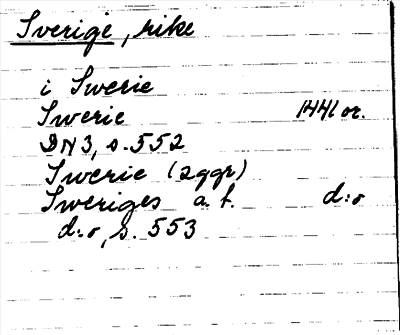 Sverige, rike
i Swerie
Swerie 1441 or.
DN3, s. 552
Swerie (2 ggr)
Sweriges a. f. d:o
d:o, s. 553